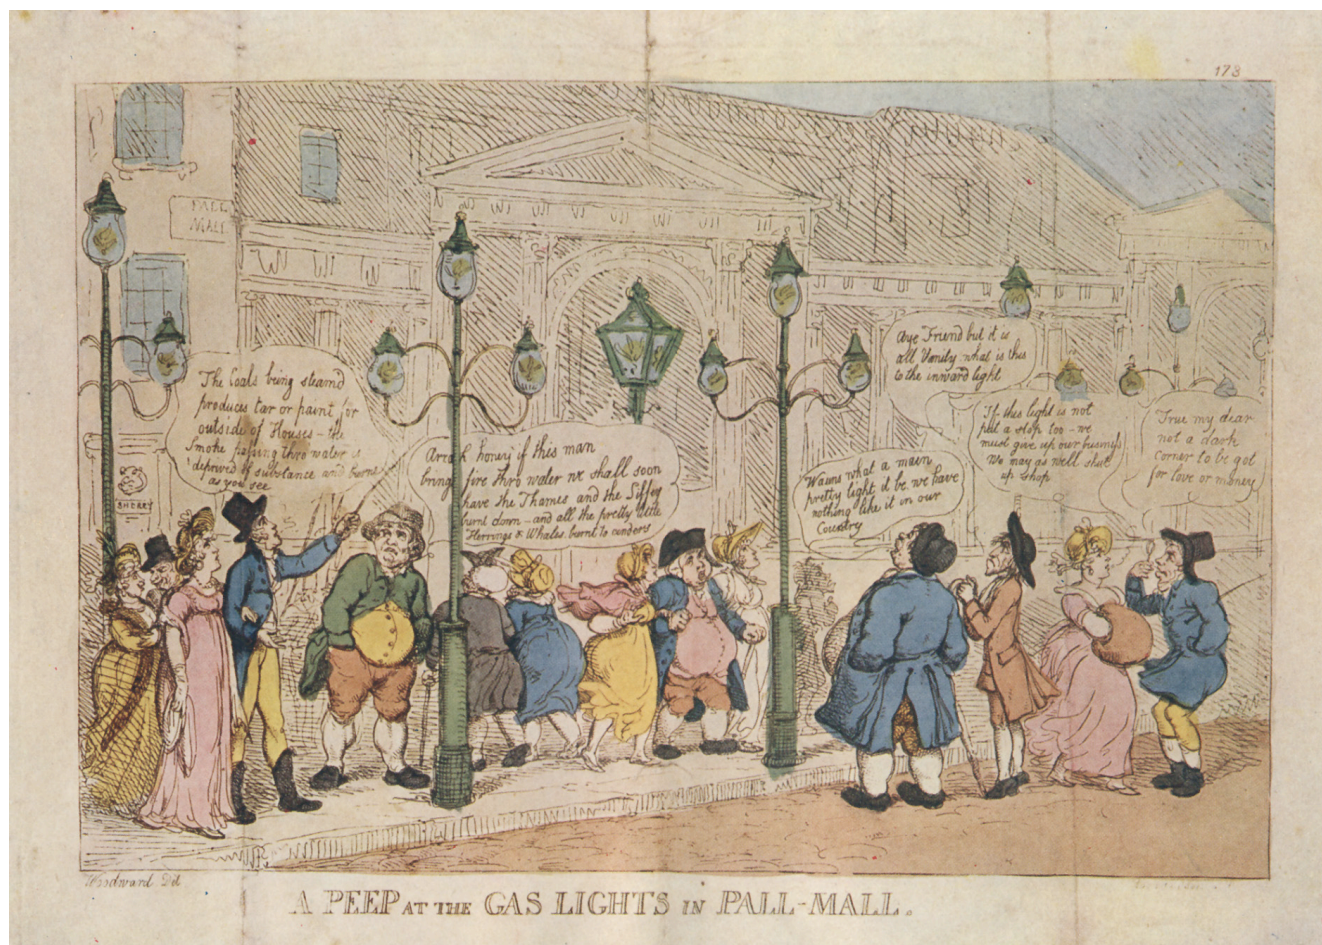 173
PALL
MALL
The Coals being steamd
produces tar or paint for
outside of Houses – the
Smoke passing thro water is
deprived of substance and burns
as you see
Arrah honey if this man
brings fire thro water we shall soon
have the Thames and the Liffey
burnt down – and all the pretty little
Herrings & Whales burnt to cinders
Wauns what a main
pretty light it be we have
nothing like it in our
Country
Aye Friend but it is
all Vanity what is this
to the inward light
If this light is not
put a stop too – we
must give up our business
We may as well shut
up shop
True my dear
not a dark
Corner to be got
for love or money
SHERRY
Woodward Del
A PEEP AT THE GAS LIGHTS IN PALL-MALL.